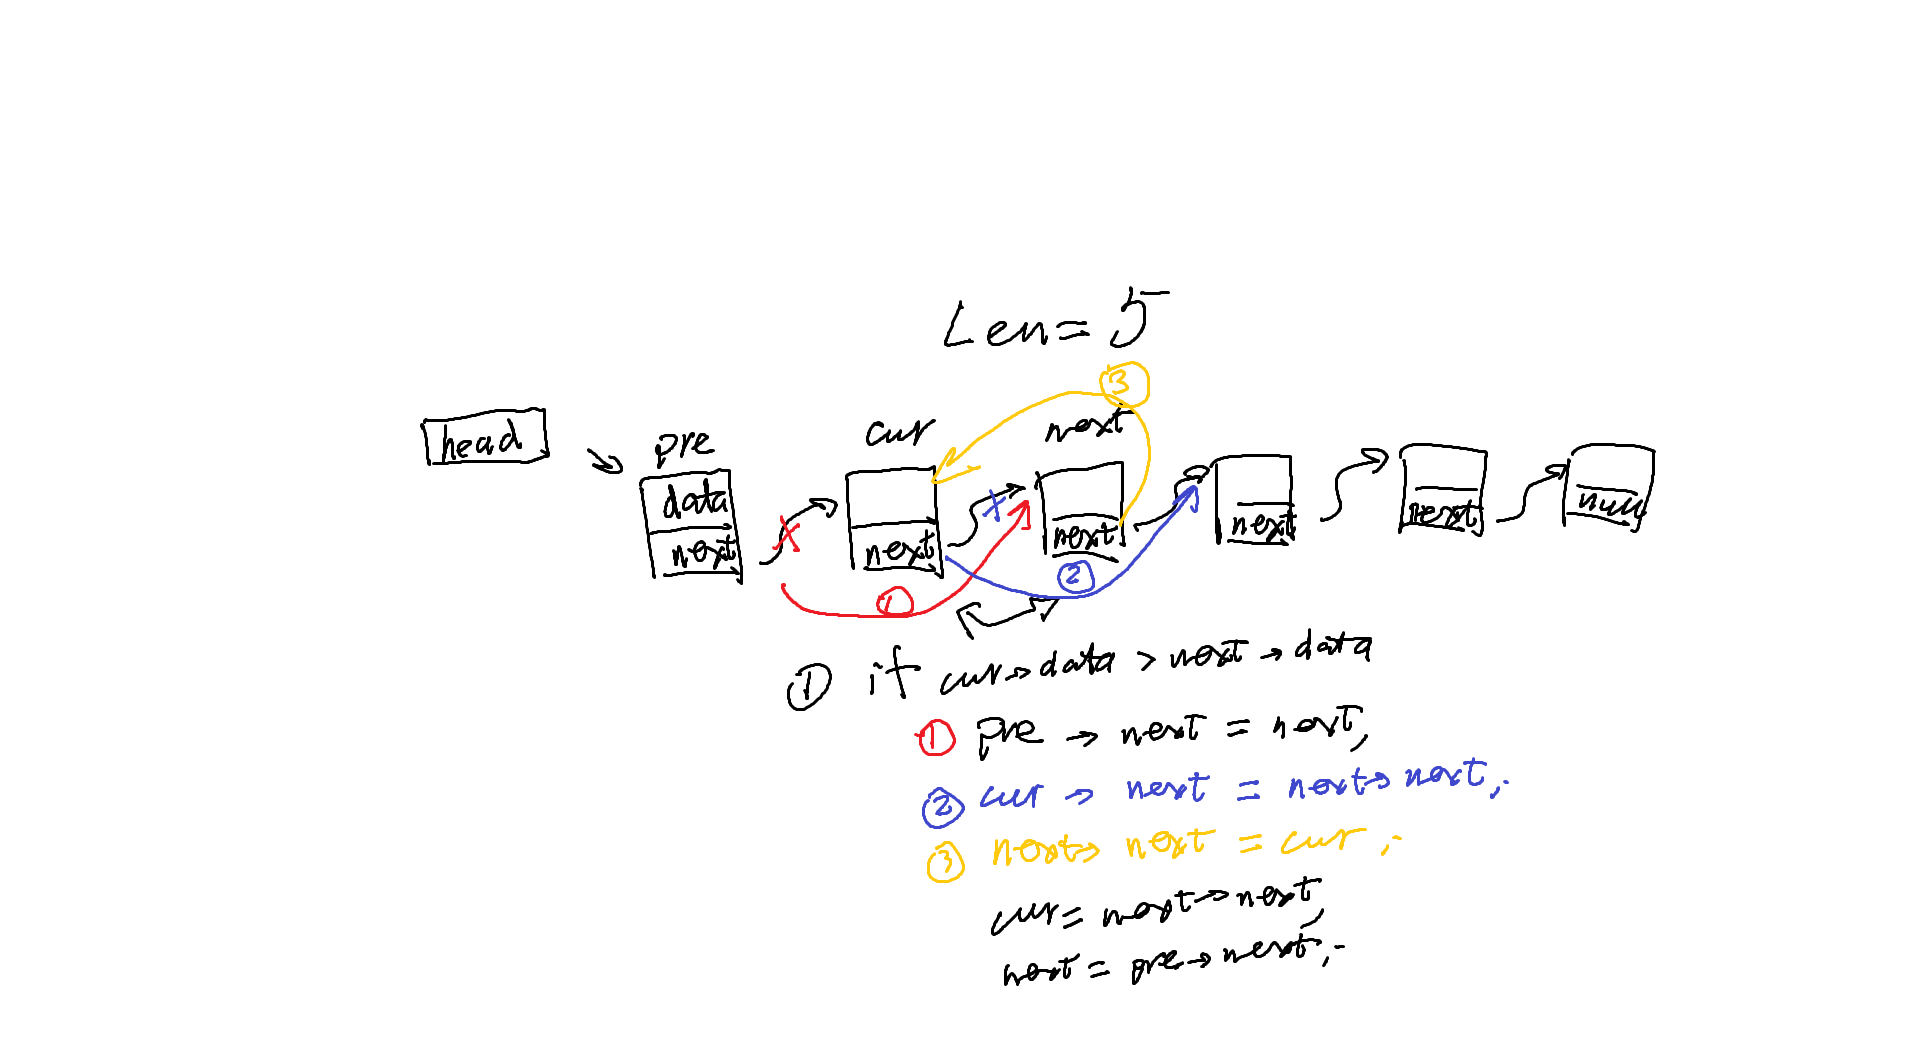 Len = 5
③
head
pre
cur
next
data
next
next
next
next
next
null
①
②
① if cur→data > next→data
① pre → next = next,
② cur → next = next→next;
③ next→ next = cur ;
cur = next→next,
next = pre→next;